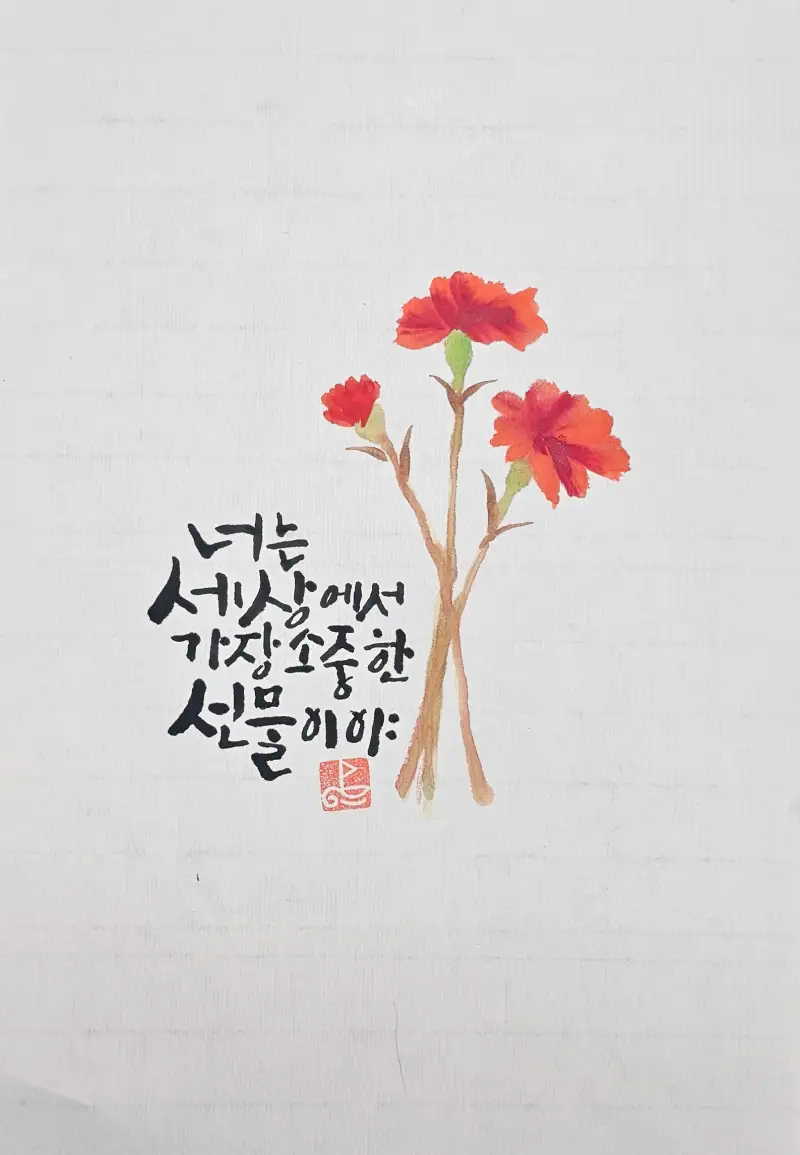 너는
세상에서
가장 소중한
선물이야